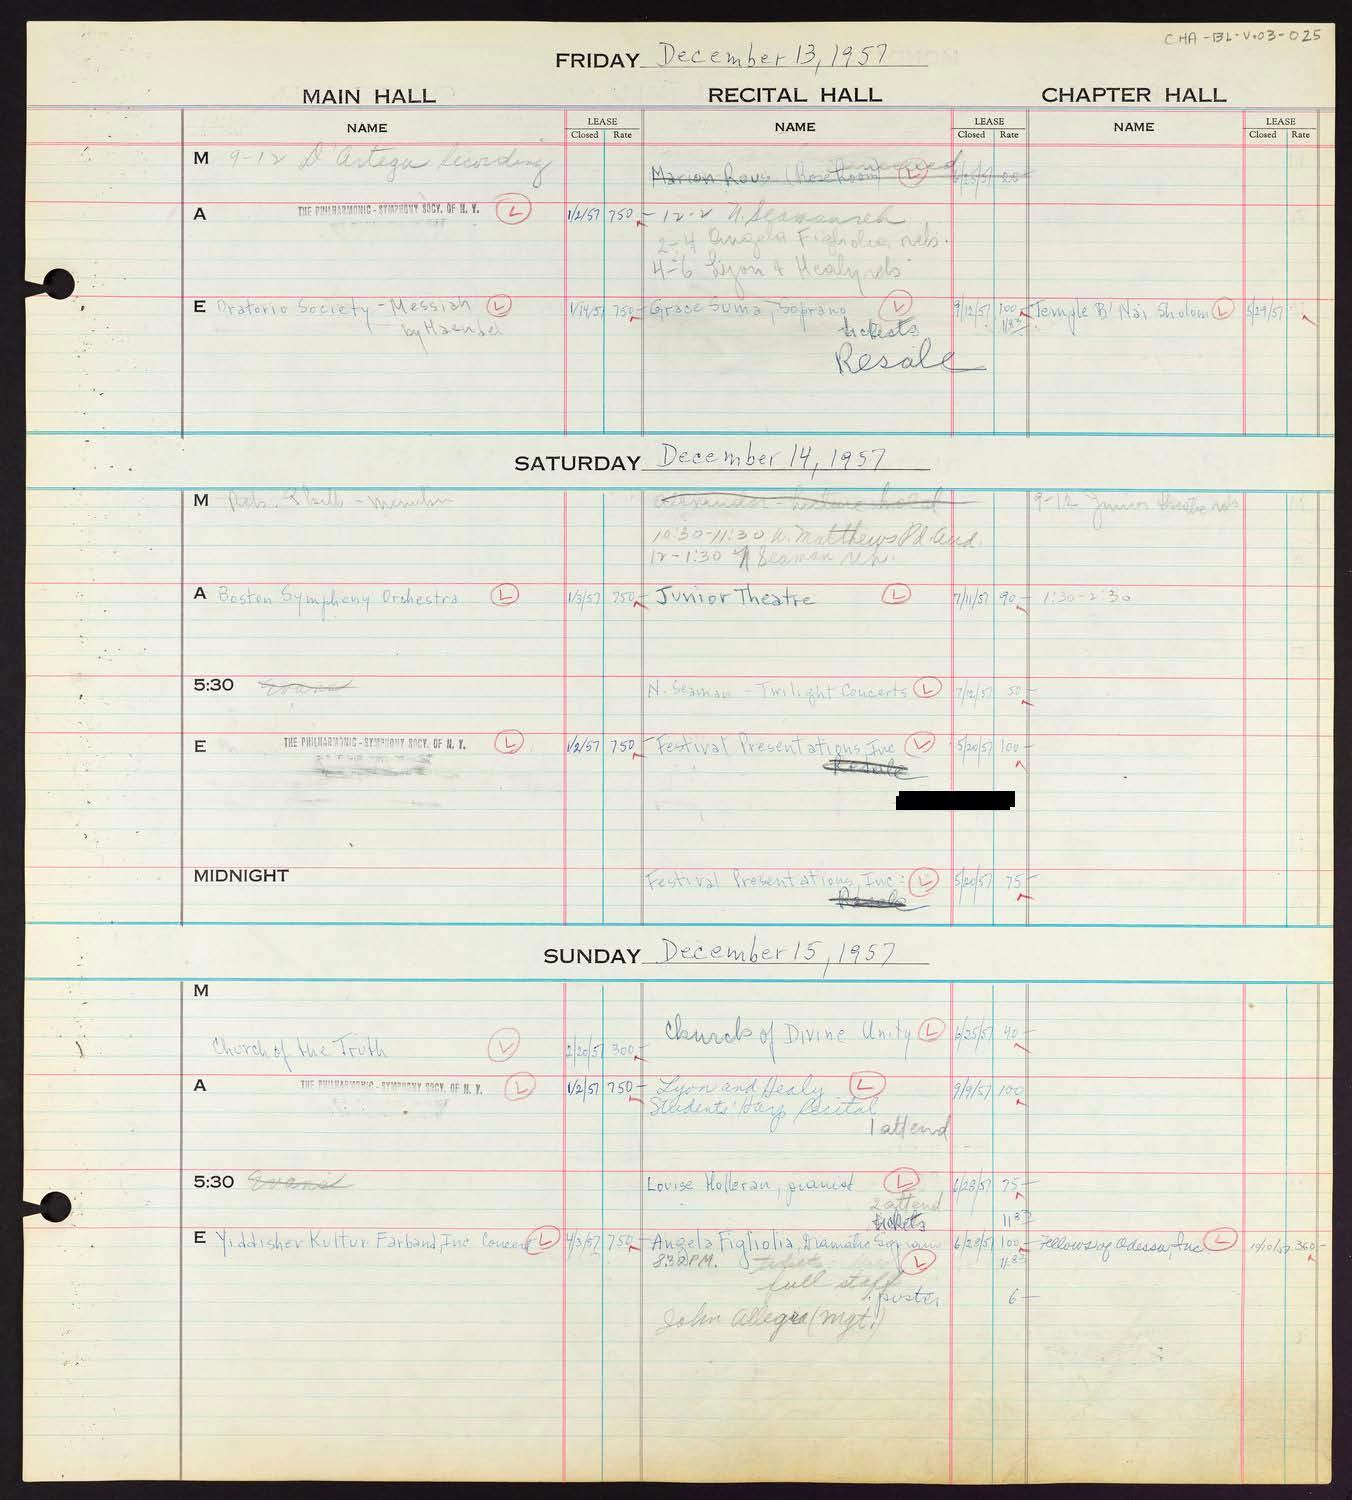 CHA-BL-V.03-025
FRIDAY December 13, 1957
MAIN HALL RECITAL HALL CHAPTER HALL
NAME LEASE Closed Rate NAME LEASE Closed Rate NAME LEASE Closed Rate
M 9-12 D'Artega Recording
Marion Rous (Rose Room) L
A THE PHILHARMONIC-SYMPHONY SOCY. OF N. Y. L 1/2/57 750 12-2 N. Seaman reh
2-4 Angela Figliolia reh.
4-6 Lyon & Healy reh
E Oratorio Society - Messiah L 1/14/57 750 Grace Suma, Soprano L 9/12/57 100 Temple B'Nai Sholom L 5/29/57
by Haendel tickets 1183
Resale
SATURDAY December 14, 1957
M 9-12 Junior theatre reh
10:30-11:30 W. Matthews Pd. Aud.
12-1:30 N Seaman reh.
A Boston Symphony Orchestra L 1/3/57 750 Junior Theatre L 7/11/57 90 1:30-2:30
5:30 Evans N. Seaman - Twilight Concerts L 7/12/57 50
E THE PHILHARMONIC-SYMPHONY SOCY. OF N. Y. L 1/2/57 750 Festival Presentations, Inc L 5/20/57 100
Resale
MIDNIGHT Festival Presentations, Inc. L 5/20/57 75
Resale
SUNDAY December 15, 1957
M
Church of Divine Unity L 6/25/57 40
Church of the Truth L 2/20/57 300
A THE PHILHARMONIC-SYMPHONY SOCY. OF N. Y. L 1/2/57 750 Lyon and Healy L 9/9/57 100
Students' Harp Recital
1 attend
5:30 Evans Louise Holleran, pianist L 6/28/57 75
2 attend
tickets 1183
E Yiddisher Kultur Farband, Inc Concert L 4/3/57 750 Angela Figliolia, Dramatic Soprano 6/28/57 100 Fellows of Odessa, Inc. L 10/10/57 360
8:30 P.M. tickets L 1183
full staff
poster 6
John Allegra (mgt.)